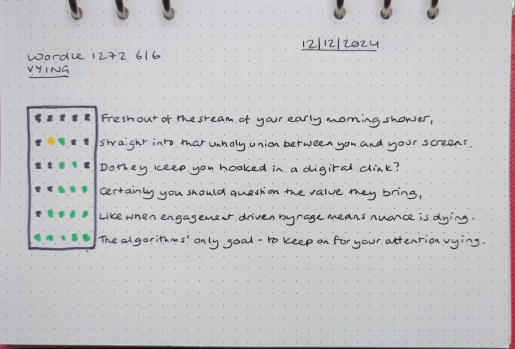 12/12/2024
Wordle 1272 6/6
VYING
Fresh out of the steam of your early morning shower,
Straight into that unholy union between you and your screens.
Do they keep you hooked in a digital clink?
Certainly you should question the value they bring,
Like when engagement driven by rage means nuance is dying.
The algorithms' only goal - to keep on for your attention vying.